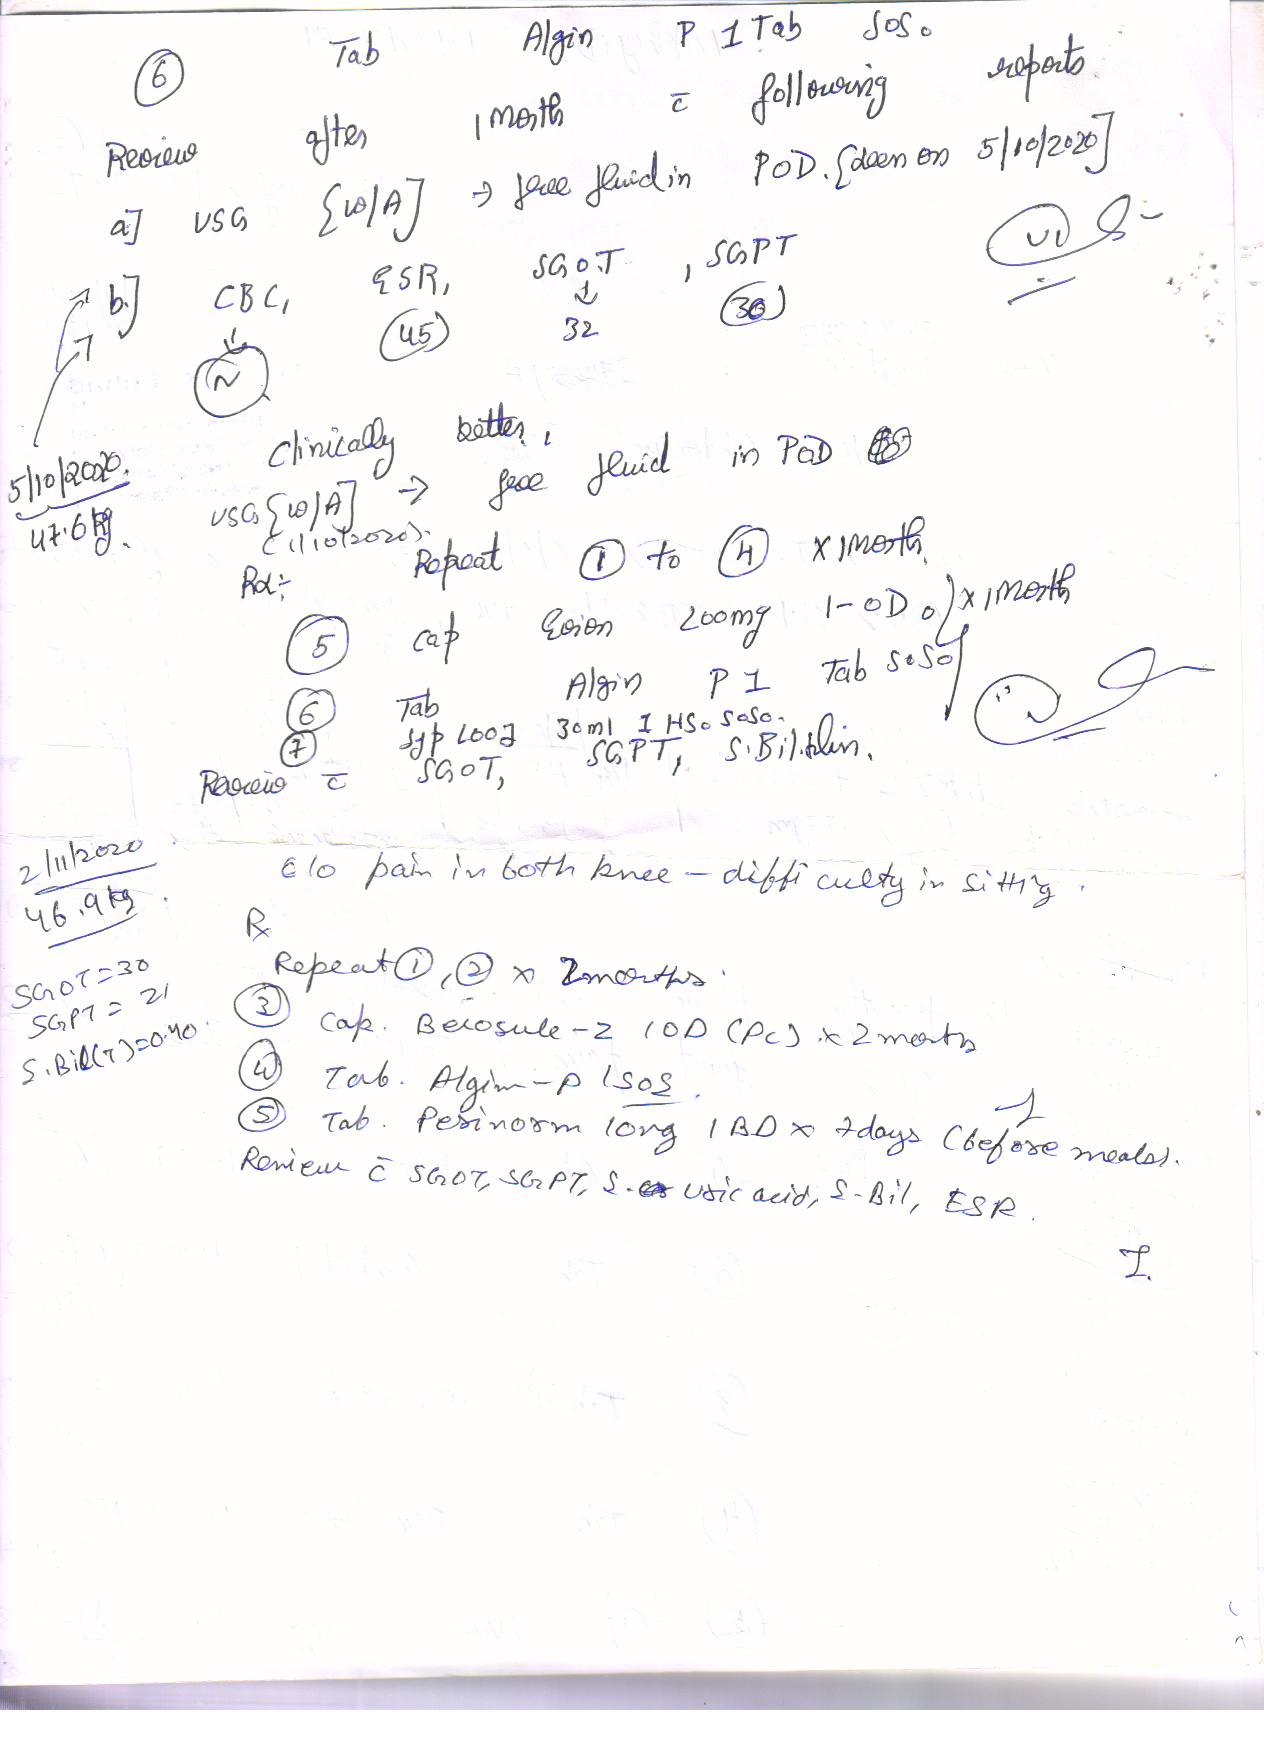 ⑥ Tab Algin P 1 Tab SOS.
Review after 1 Month c̄ following reports
a] USG {W/A] → free fluid in POD. {seen on 5/10/2020]
b] CBC, ESR, SGOT, SGPT
N 45 32 30
5/10/2020.
47.6 kg.
Clinically better,
USG {W/A] → free fluid in POD
(1/10/2020).
Repeat ① to ④ x 1 Month.
⑤ Cap Evion 200mg 1-OD. x 1 Month
⑥ Tab Algin P 1 Tab SOS
⑦ Syp Looz 30ml 1 HS. SOS.
Review c̄ SGOT, SGPT, S.Bil
2/11/2020
46.9 kg
SGOT = 30
SGPT = 21
S.Bil(T) = 0.40
C/o pain in both knee - difficulty in sitting.
Rx
Repeat ①, ② x 2 months.
③ Cap. Becosule-Z 1 OD (PC) x 2 months
④ Tab. Algin-P 1 SOS.
⑤ Tab. Perinorm long 1 BD x 7 days (before meals).
Review c̄ SGOT, SGPT, S. Uric acid, S-Bil, ESR.